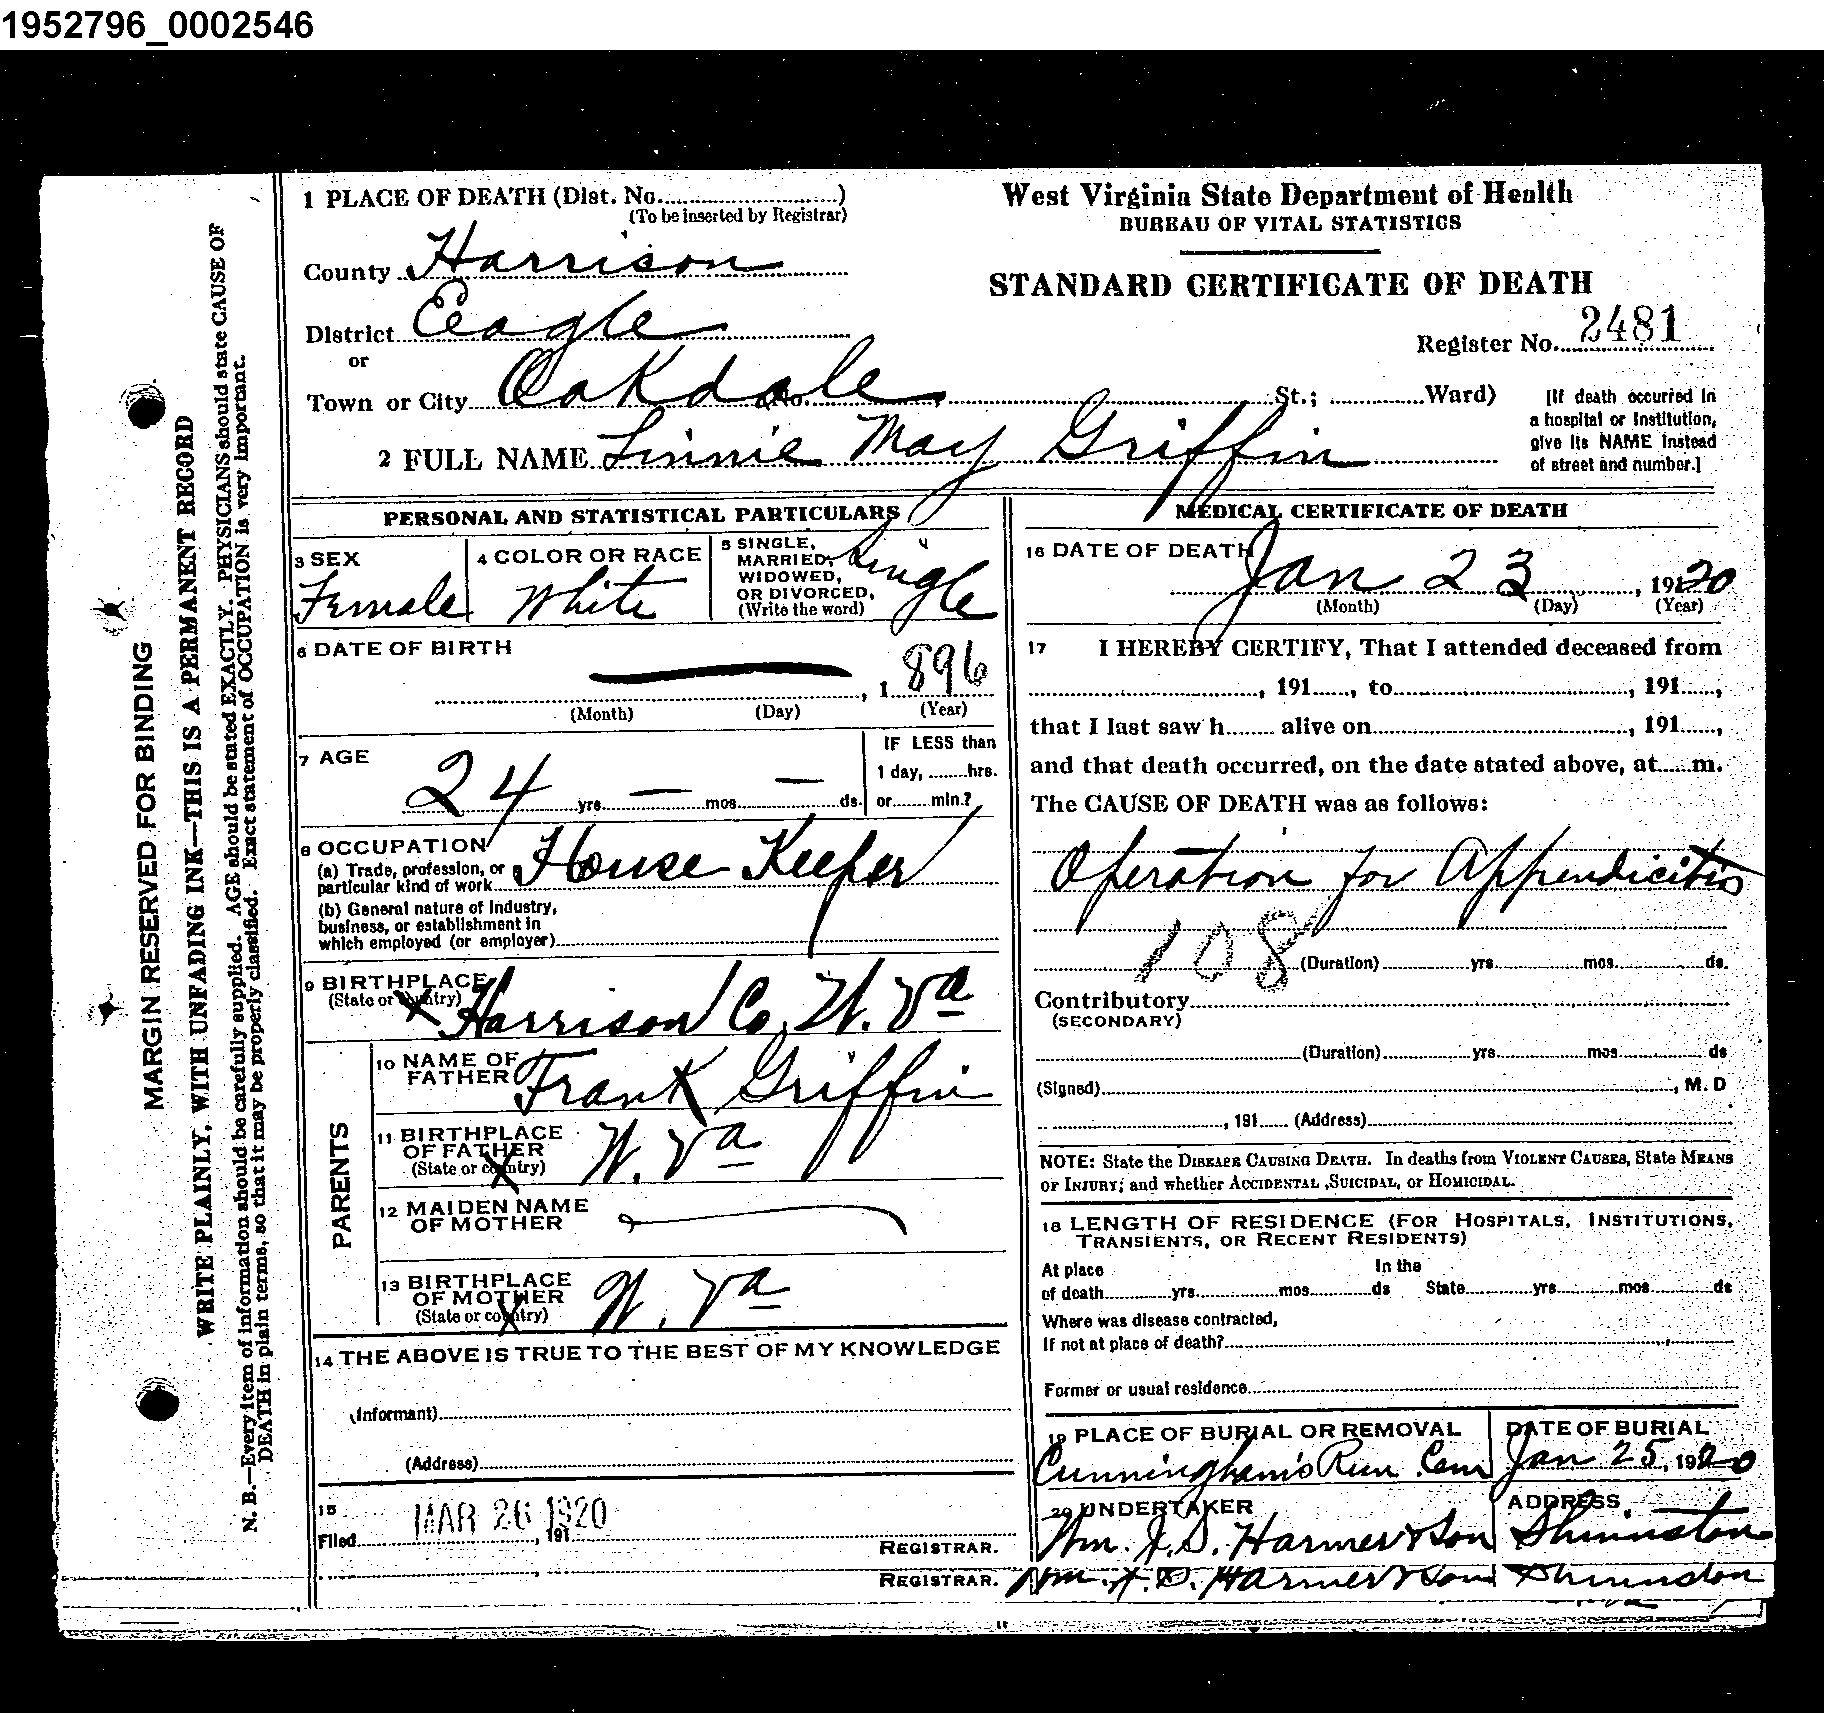 1952796_0002546
1 PLACE OF DEATH (Dist. No.....................)
(To be inserted by Registrar)
County Harrison
District Eagle
or
Town or City Oakdale No. St.; Ward)
2 FULL NAME Linnie May Griffin
West Virginia State Department of Health
BUREAU OF VITAL STATISTICS
STANDARD CERTIFICATE OF DEATH
Register No. 2481
[If death occurred in
a hospital or institution,
give its NAME instead
of street and number.]
PERSONAL AND STATISTICAL PARTICULARS
3 SEX
Female
4 COLOR OR RACE
White
5 SINGLE,
MARRIED,
WIDOWED,
OR DIVORCED,
(Write the word)
Single
6 DATE OF BIRTH
, 1 896
(Month) (Day) (Year)
7 AGE
24 yrs. — mos. — ds.
IF LESS than
1 day, ........hrs.
or........min.?
8 OCCUPATION
(a) Trade, profession, or
particular kind of work House Keeper
(b) General nature of Industry,
business, or establishment in
which employed (or employer)
9 BIRTHPLACE
(State or country) Harrison Co, W. Va
PARENTS
10 NAME OF
FATHER Frank Griffin
11 BIRTHPLACE
OF FATHER
(State or country) W. Va
12 MAIDEN NAME
OF MOTHER
13 BIRTHPLACE
OF MOTHER
(State or country) W. Va
14 THE ABOVE IS TRUE TO THE BEST OF MY KNOWLEDGE
(Informant)
(Address)
15
Filed MAR 26 1920, 191
REGISTRAR.
REGISTRAR.
MEDICAL CERTIFICATE OF DEATH
16 DATE OF DEATH
Jan 23, 1920
(Month) (Day) (Year)
17 I HEREBY CERTIFY, That I attended deceased from
, 191......, to , 191......,
that I last saw h........ alive on , 191......,
and that death occurred, on the date stated above, at......m.
The CAUSE OF DEATH was as follows:
Operation for Appendicitis
108
(Duration) yrs. mos. ds.
Contributory
(SECONDARY)
(Duration) yrs. mos. ds
(Signed) , M. D
, 191...... (Address)
NOTE: State the DISEASE CAUSING DEATH. In deaths from VIOLENT CAUSES, State MEANS
or INJURY; and whether ACCIDENTAL ,SUICIDAL, or HOMICIDAL.
18 LENGTH OF RESIDENCE (FOR HOSPITALS, INSTITUTIONS,
TRANSIENTS, OR RECENT RESIDENTS)
At place In the
of death yrs. mos. ds State yrs. mos. ds
Where was disease contracted,
If not at place of death?
Former or usual residence
19 PLACE OF BURIAL OR REMOVAL
Cunningham's Run Cem
DATE OF BURIAL
Jan 25, 1920
20 UNDERTAKER
Wm. J. S. Harmer & Son
ADDRESS
Shinnston
Harmer & Son Shinnston
MARGIN RESERVED FOR BINDING
WRITE PLAINLY, WITH UNFADING INK—THIS IS A PERMANENT RECORD
N. B.—Every item of information should be carefully supplied. AGE should be stated EXACTLY. PHYSICIANS should state CAUSE OF
DEATH in plain terms, so that it may be properly classified. Exact statement of OCCUPATION is very important.